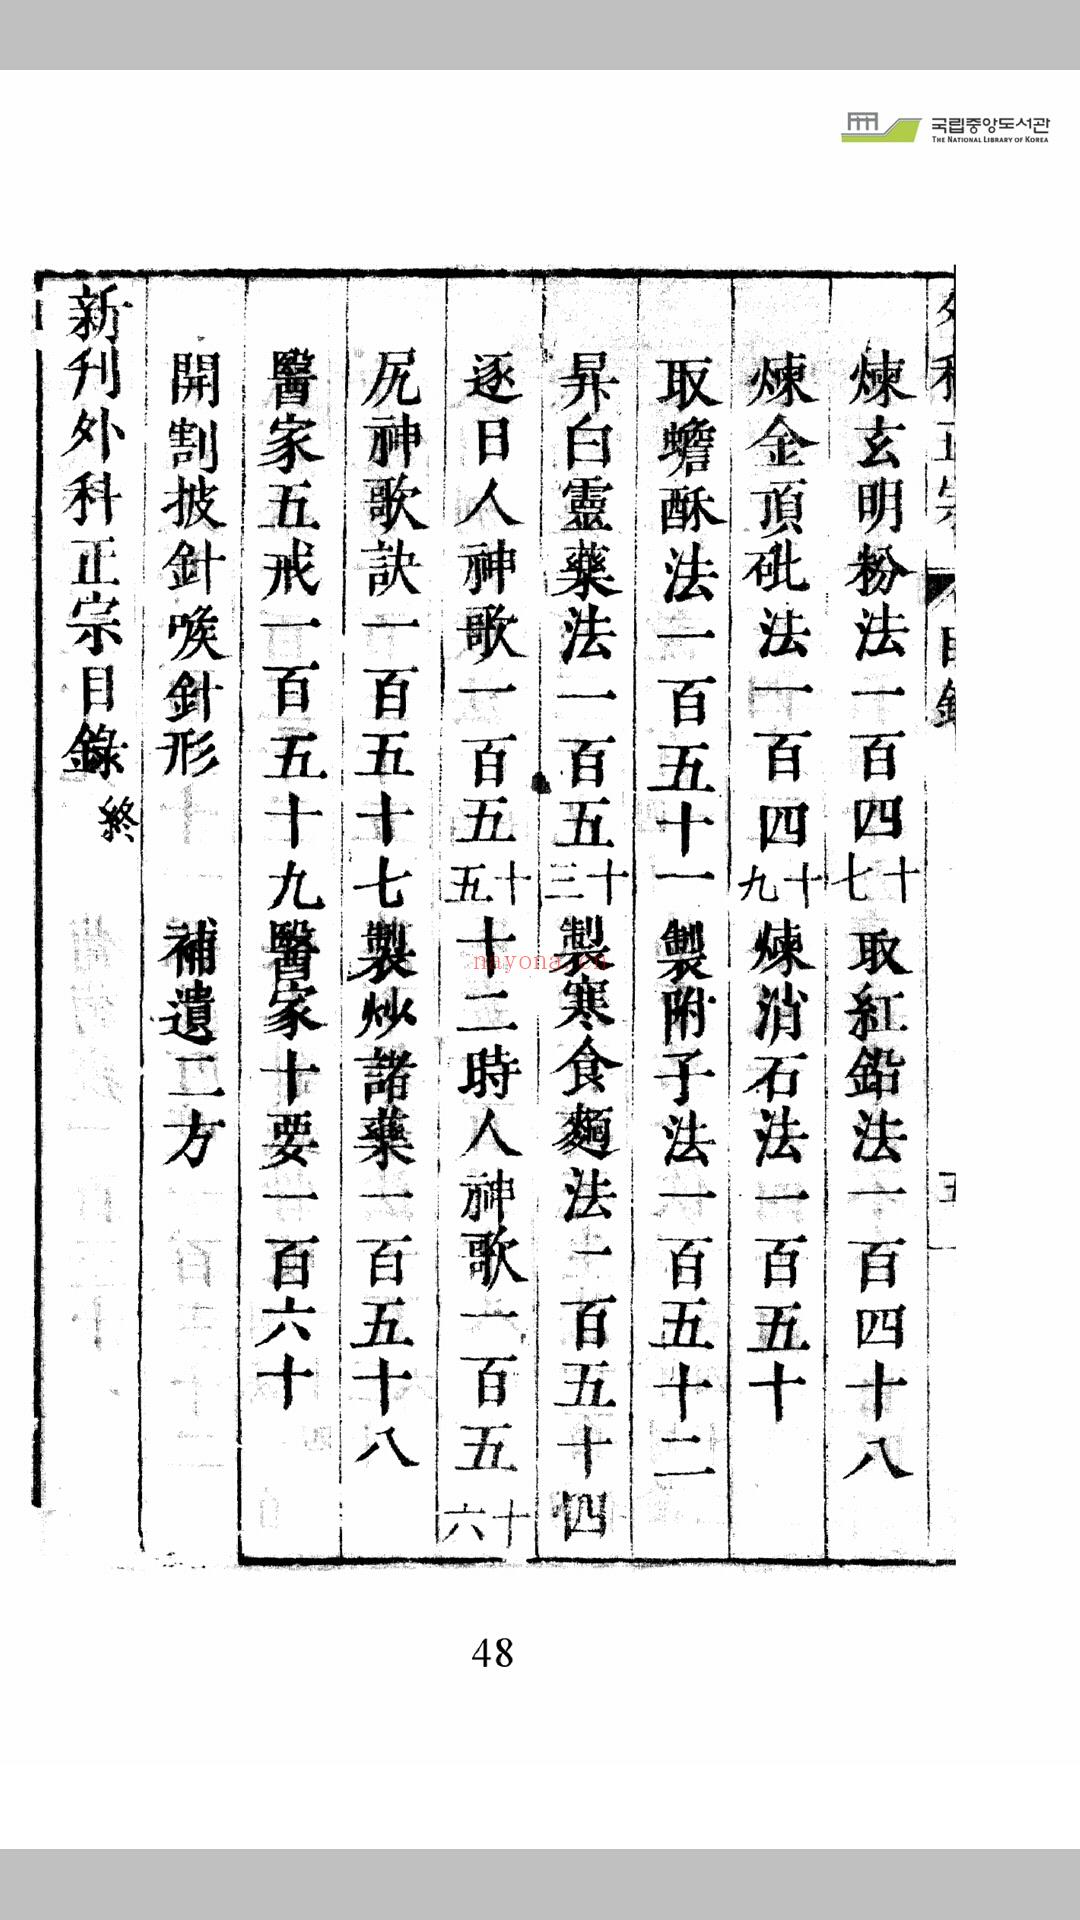 국립중앙도서관
THE NATIONAL LIBRARY OF KOREA
煉玄明粉法一百四十七 取紅鉛法一百四十八
煉金頂砒法一百四十九 煉消石法一百五十
取蟾酥法一百五十一 製附子法一百五十二
昇白靈藥法一百五十三 製寒食麵法一百五十四
逐日人神歌一百五十五 十二時人神歌一百五十六
尻神歌訣一百五十七 製炒諸藥一百五十八
醫家五戒一百五十九 醫家十要一百六十
開割披針喉針形 補遺二方
新刊外科正宗目錄 終
nayona.cn
48